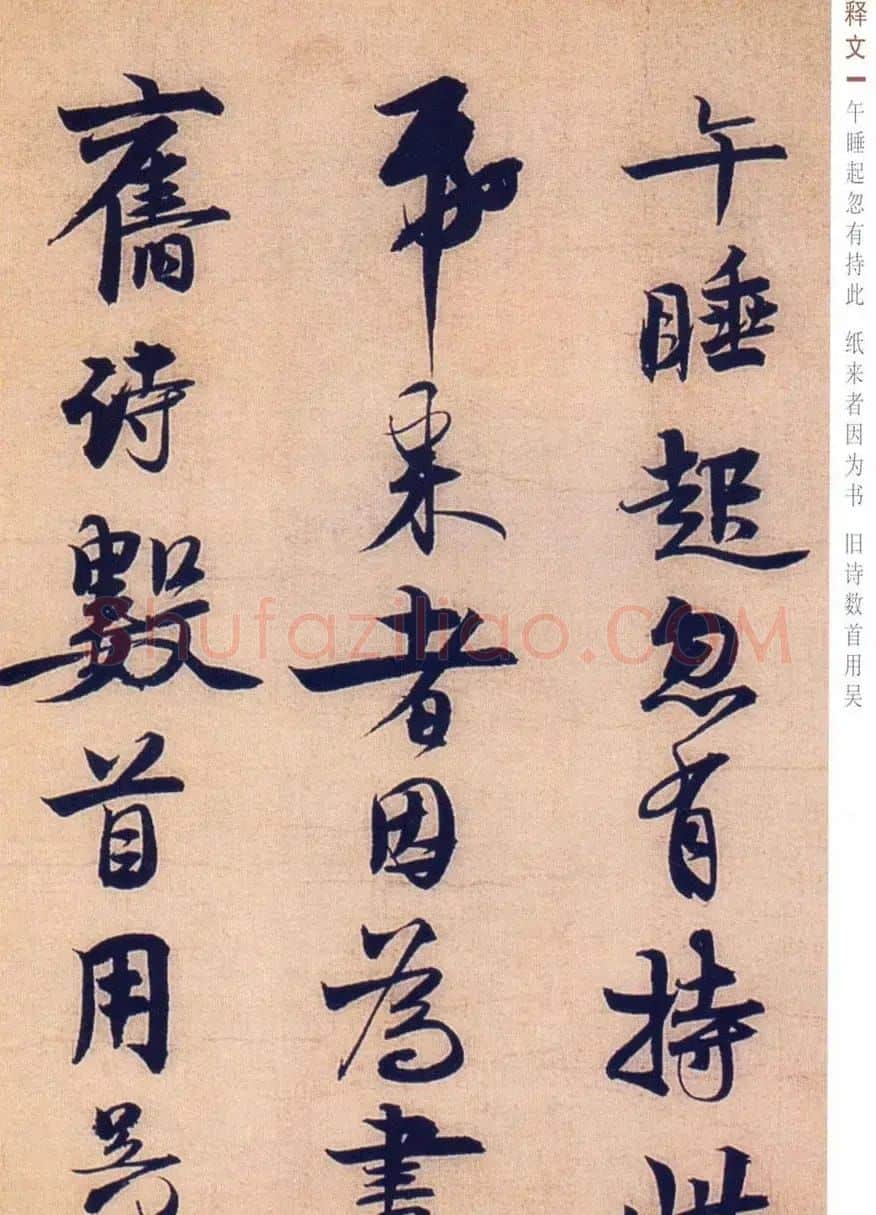 释文
午睡起忽有持此 纸来者因为书 旧诗数首用吴
午睡起忽有持此
帋来者因為書
舊诗數首用吴
Shufaziliao.COM